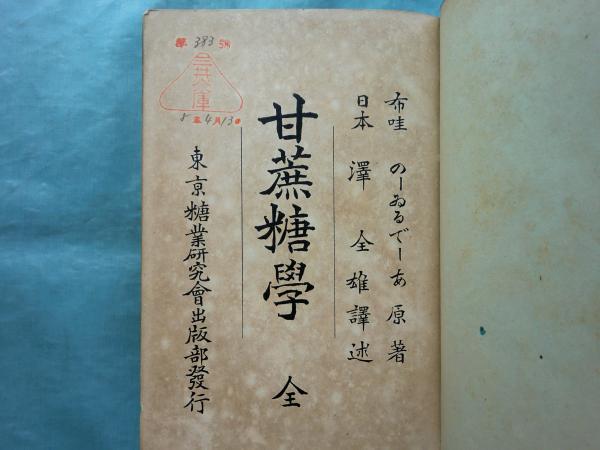 布哇 のーゐるでーあ 原著
日本 澤 全雄譯述
甘蔗糖學 全
東京糖業研究會出版部發行
第 383 號
8年4月13日